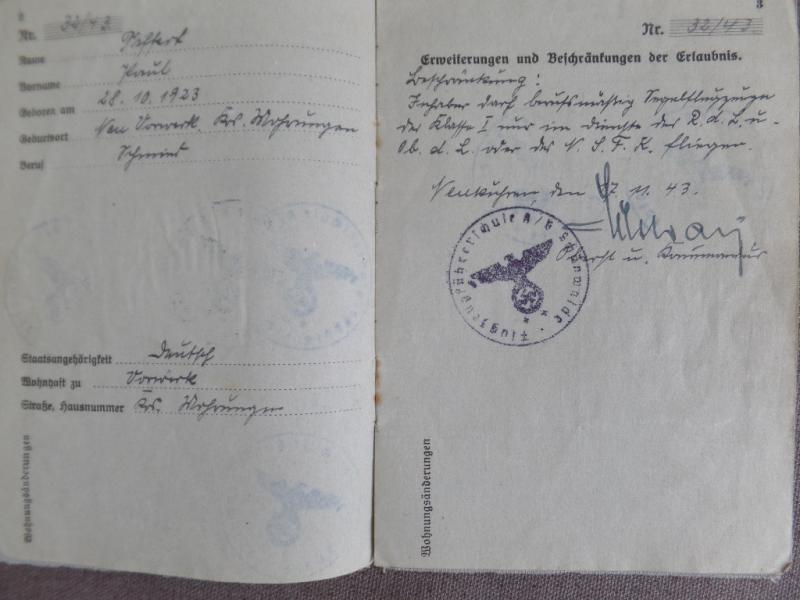 2
Nr. 32/43
Name
Vorname Paul
Geboren am 28.10.1923
Geburtsort Neu Vorwerk, Krs. Mohrungen
Beruf Schmied
Staatsangehörigkeit Deutsch
Wohnhaft zu Vorwerk
Straße, Hausnummer Krs. Mohrungen
Wohnungsänderungen
3
Nr. 32/43
Erweiterungen und Beschränkungen der Erlaubnis.
Beschränkung:
Inhaber darf berufsmäßig Segelflugzeuge
der Klasse I nur im Dienste des R. d. L. u.
Ob. d. L. oder des N. S. F. K. fliegen.
Neukuhren, den 17. 11. 43.
Oberst u. Kommandeur
Flugzeugführerschule A/B
Wohnungsänderungen